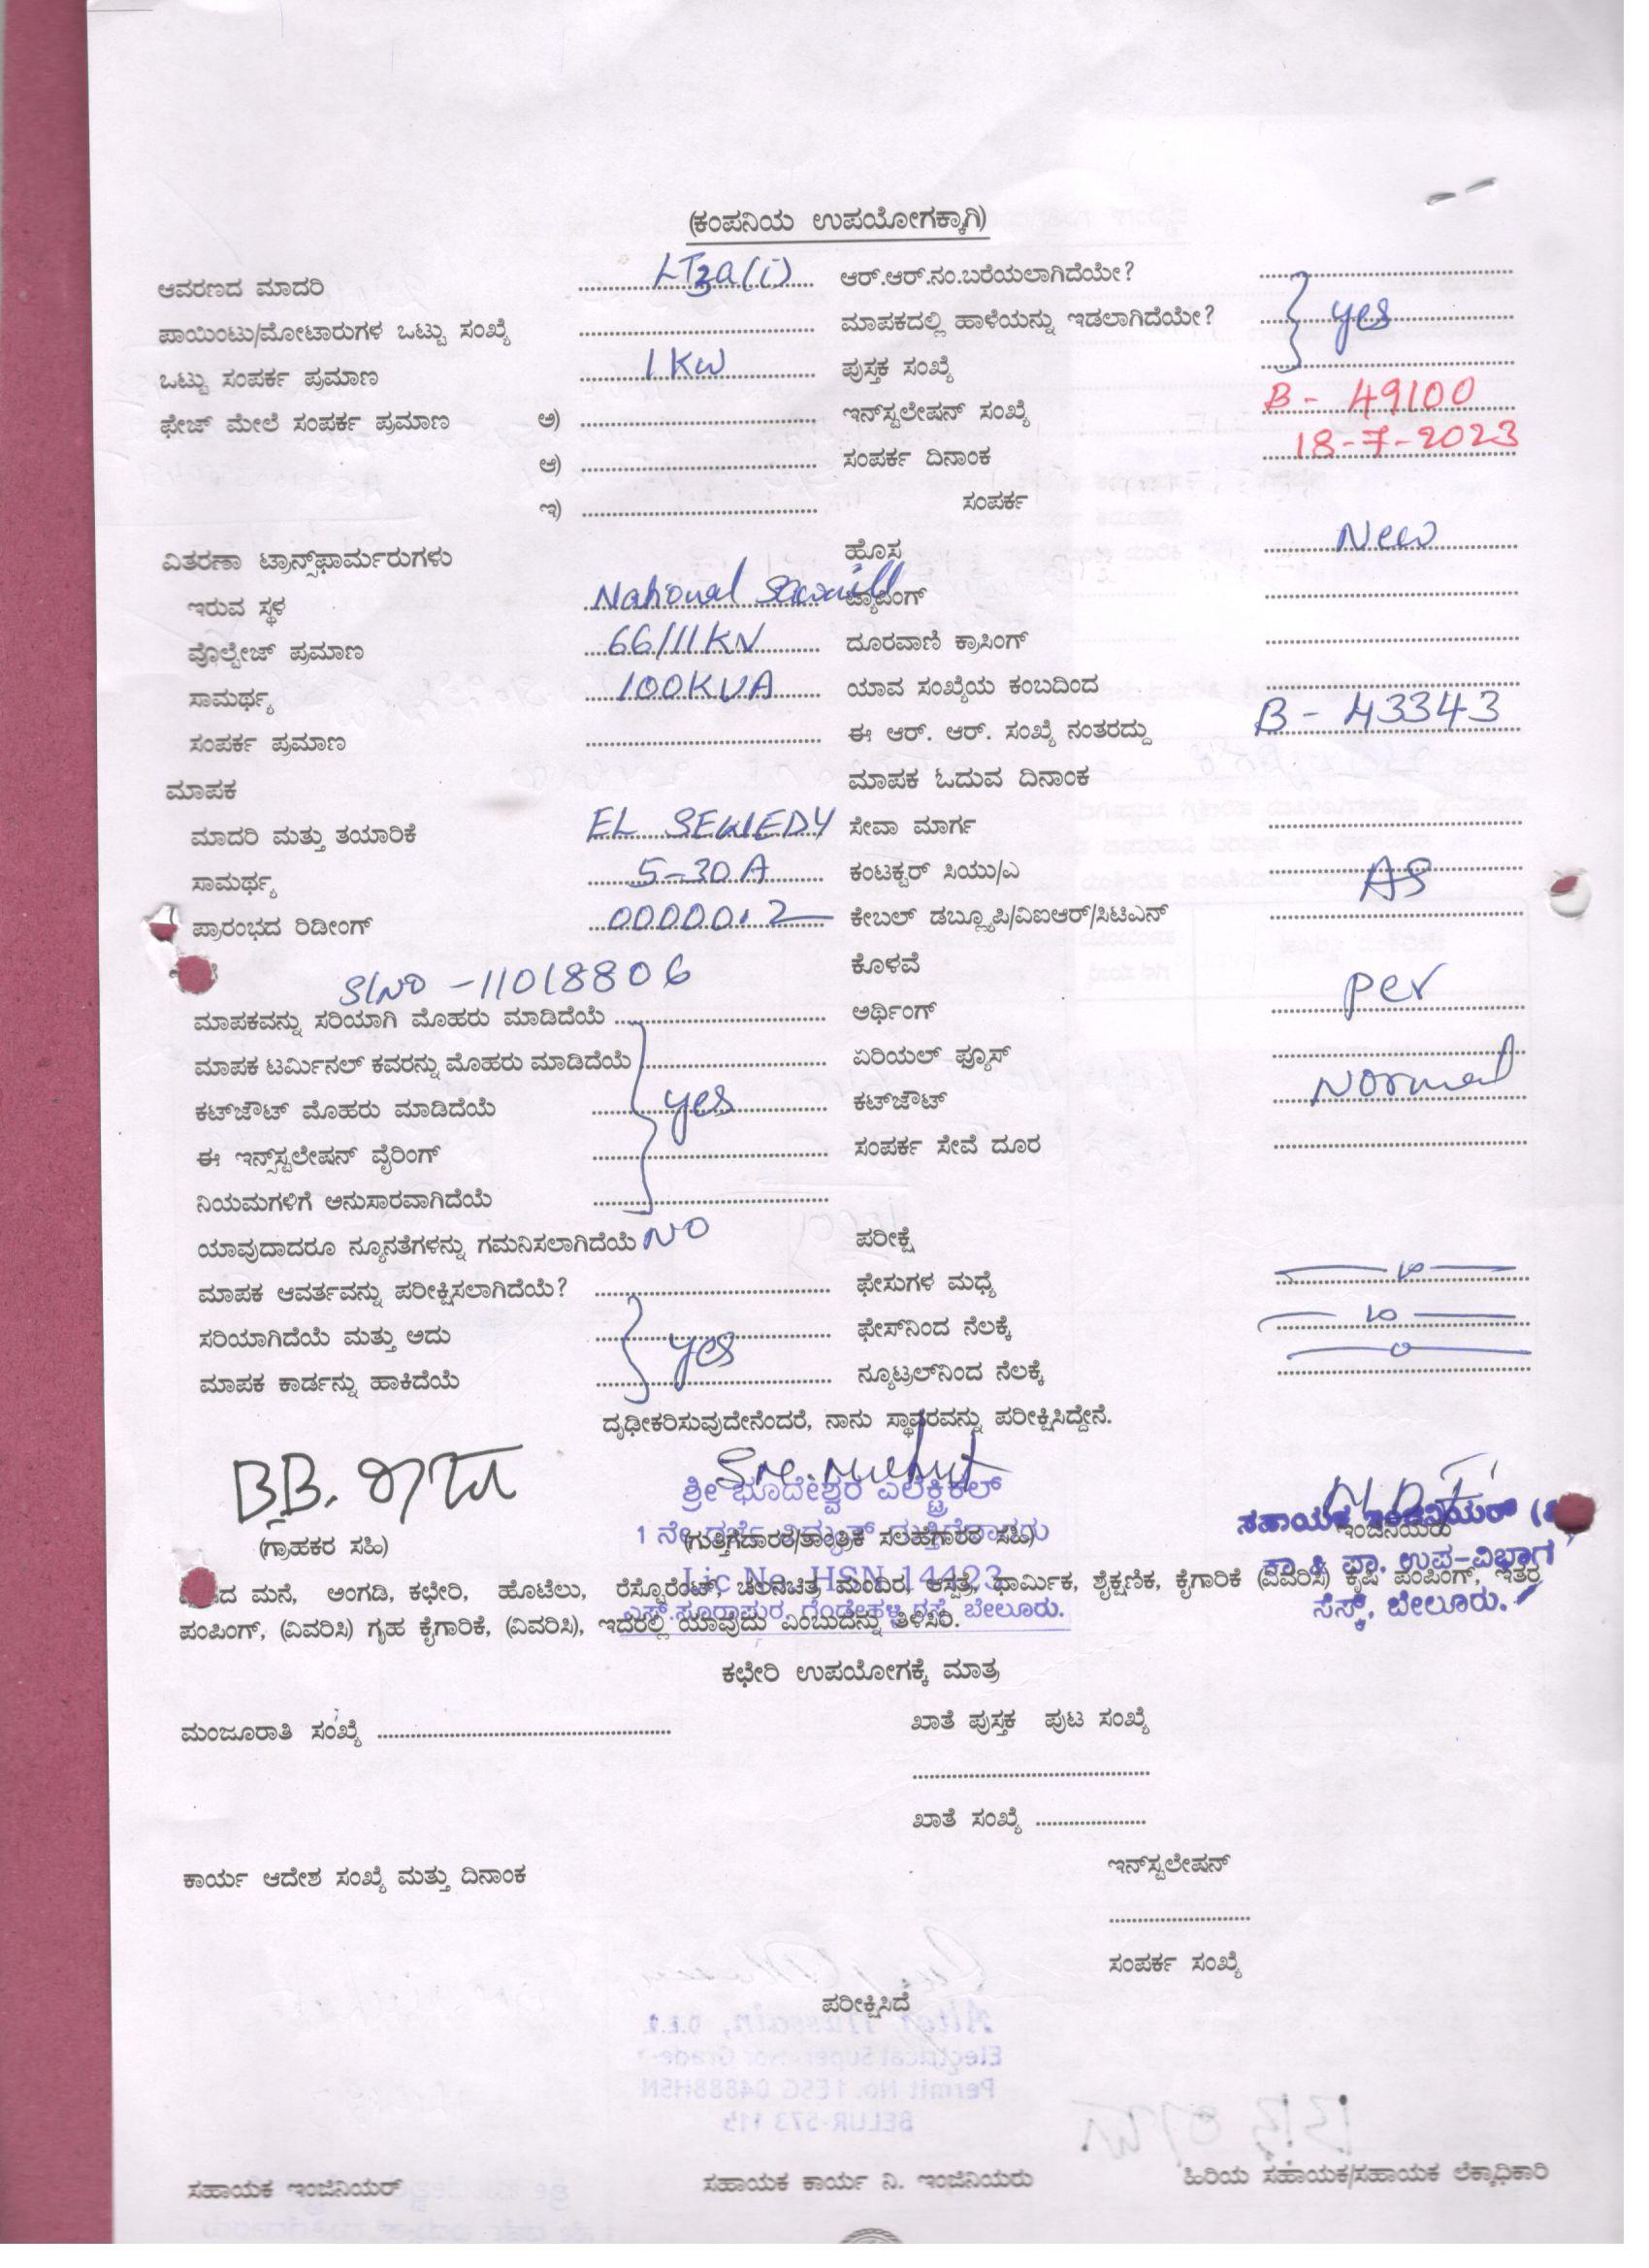 (ಕಂಪನಿಯ ಉಪಯೋಗಕ್ಕಾಗಿ)
ಆವರಣದ ಮಾದರಿ LT3a(i) ಆರ್.ಆರ್.ನಂ.ಬರೆಯಲಾಗಿದೆಯೇ?
ಪಾಯಿಂಟು/ಮೋಟಾರುಗಳ ಒಟ್ಟು ಸಂಖ್ಯೆ ಮಾಪಕದಲ್ಲಿ ಹಾಳೆಯನ್ನು ಇಡಲಾಗಿದೆಯೇ? yes
ಒಟ್ಟು ಸಂಪರ್ಕ ಪ್ರಮಾಣ 1 KW ಪುಸ್ತಕ ಸಂಖ್ಯೆ
ಫೇಜ್ ಮೇಲೆ ಸಂಪರ್ಕ ಪ್ರಮಾಣ ಅ) ಇನ್‌ಸ್ಟಲೇಷನ್ ಸಂಖ್ಯೆ B - 49100
ಆ) ಸಂಪರ್ಕ ದಿನಾಂಕ 18-7-2023
ಇ) ಸಂಪರ್ಕ
ವಿತರಣಾ ಟ್ರಾನ್ಸ್‌ಫಾರ್ಮರುಗಳು ಹೊಸ New
ಇರುವ ಸ್ಥಳ National Sawmill ಟ್ಯಾಪಿಂಗ್
ವೊಲ್ಟೇಜ್ ಪ್ರಮಾಣ 66/11KV ದೂರವಾಣಿ ಕ್ರಾಸಿಂಗ್
ಸಾಮರ್ಥ್ಯ 100KVA ಯಾವ ಸಂಖ್ಯೆಯ ಕಂಬದಿಂದ
ಸಂಪರ್ಕ ಪ್ರಮಾಣ ಈ ಆರ್. ಆರ್. ಸಂಖ್ಯೆ ನಂತರದ್ದು B - 43343
ಮಾಪಕ ಮಾಪಕ ಓದುವ ದಿನಾಂಕ
ಮಾದರಿ ಮತ್ತು ತಯಾರಿಕೆ EL SEWEDY ಸೇವಾ ಮಾರ್ಗ
ಸಾಮರ್ಥ್ಯ 5-30A ಕಂಟಕ್ಟರ್ ಸಿಯು/ಎ AS
ಪ್ರಾರಂಭದ ರಿಡೀಂಗ್ 00000.2 ಕೇಬಲ್ ಡಬ್ಲ್ಯೂಪಿ/ವಿಐಆರ್/ಸಿಟಿಎನ್
Sl No - 11018806 ಕೊಳವೆ
ಮಾಪಕವನ್ನು ಸರಿಯಾಗಿ ಮೊಹರು ಮಾಡಿದೆಯೆ ಅರ್ಥಿಂಗ್ per
ಮಾಪಕ ಟರ್ಮಿನಲ್ ಕವರನ್ನು ಮೊಹರು ಮಾಡಿದೆಯೆ ಏರಿಯಲ್ ಫ್ಯೂಸ್
ಕಟ್‌ಜೌಟ್ ಮೊಹರು ಮಾಡಿದೆಯೆ yes ಕಟ್‌ಜೌಟ್ Normal
ಈ ಇನ್ಸ್‌ಸ್ಟಲೇಷನ್ ವೈರಿಂಗ್ ಸಂಪರ್ಕ ಸೇವೆ ದೂರ
ನಿಯಮಗಳಿಗೆ ಅನುಸಾರವಾಗಿದೆಯೆ
ಯಾವುದಾದರೂ ನ್ಯೂನತೆಗಳನ್ನು ಗಮನಿಸಲಾಗಿದೆಯೆ NO ಪರೀಕ್ಷೆ
ಮಾಪಕ ಆವರ್ತವನ್ನು ಪರೀಕ್ಷಿಸಲಾಗಿದೆಯೆ? ಫೇಸುಗಳ ಮಧ್ಯೆ
ಸರಿಯಾಗಿದೆಯೆ ಮತ್ತು ಅದು yes ಫೇಸ್‌ನಿಂದ ನೆಲಕ್ಕೆ 10
ಮಾಪಕ ಕಾರ್ಡನ್ನು ಹಾಕಿದೆಯೆ ನ್ಯೂಟ್ರಲ್‌ನಿಂದ ನೆಲಕ್ಕೆ 0
ದೃಢೀಕರಿಸುವುದೇನೆಂದರೆ, ನಾನು ಸ್ಥಾವರವನ್ನು ಪರೀಕ್ಷಿಸಿದ್ದೇನೆ.
BB. ರಾಜು
ಶ್ರೀ ಭೂದೇಶ್ವರ ಎಲೆಕ್ಟ್ರಿಕಲ್
ಸಹಾಯಕ ಇಂಜಿನಿಯರ್
(ಗ್ರಾಹಕರ ಸಹಿ) (ಗುತ್ತಿಗೆದಾರರ/ತಾಂತ್ರಿಕ ಸಲಹೆಗಾರರ ಸಹಿ) ಇಂಜಿನಿಯರು
ಕಾ & ಪಾ. ಉಪ-ವಿಭಾಗ
ಸೆಸ್ಕ್, ಬೇಲೂರು.
Lic No. HSN 14423
ಬೇಲೂರು.
ಮನೆ, ಅಂಗಡಿ, ಕಛೇರಿ, ಹೊಟೆಲು, ರೆಸ್ಟೊರೆಂಟ್, ಚಲನಚಿತ್ರ ಮಂದಿರ, ಆಸ್ಪತ್ರೆ, ಧಾರ್ಮಿಕ, ಶೈಕ್ಷಣಿಕ, ಕೈಗಾರಿಕೆ (ವಿವರಿಸಿ) ಕೃಷಿ ಪಂಪಿಂಗ್, ಇತರ
ಪಂಪಿಂಗ್, (ವಿವರಿಸಿ) ಗೃಹ ಕೈಗಾರಿಕೆ, (ವಿವರಿಸಿ), ಇದರಲ್ಲಿ ಯಾವುದು ಎಂಬುದನ್ನು ತಿಳಿಸಿರಿ.
ಕಛೇರಿ ಉಪಯೋಗಕ್ಕೆ ಮಾತ್ರ
ಮಂಜೂರಾತಿ ಸಂಖ್ಯೆ ಖಾತೆ ಪುಸ್ತಕ ಪುಟ ಸಂಖ್ಯೆ
ಖಾತೆ ಸಂಖ್ಯೆ
ಕಾರ್ಯ ಆದೇಶ ಸಂಖ್ಯೆ ಮತ್ತು ದಿನಾಂಕ ಇನ್‌ಸ್ಟಲೇಷನ್
ಸಂಪರ್ಕ ಸಂಖ್ಯೆ
ಪರೀಕ್ಷಿಸಿದೆ
ಸಹಾಯಕ ಇಂಜಿನಿಯರ್ ಸಹಾಯಕ ಕಾರ್ಯ ನಿ. ಇಂಜಿನಿಯರು ಹಿರಿಯ ಸಹಾಯಕ/ಸಹಾಯಕ ಲೆಕ್ಕಾಧಿಕಾರಿ